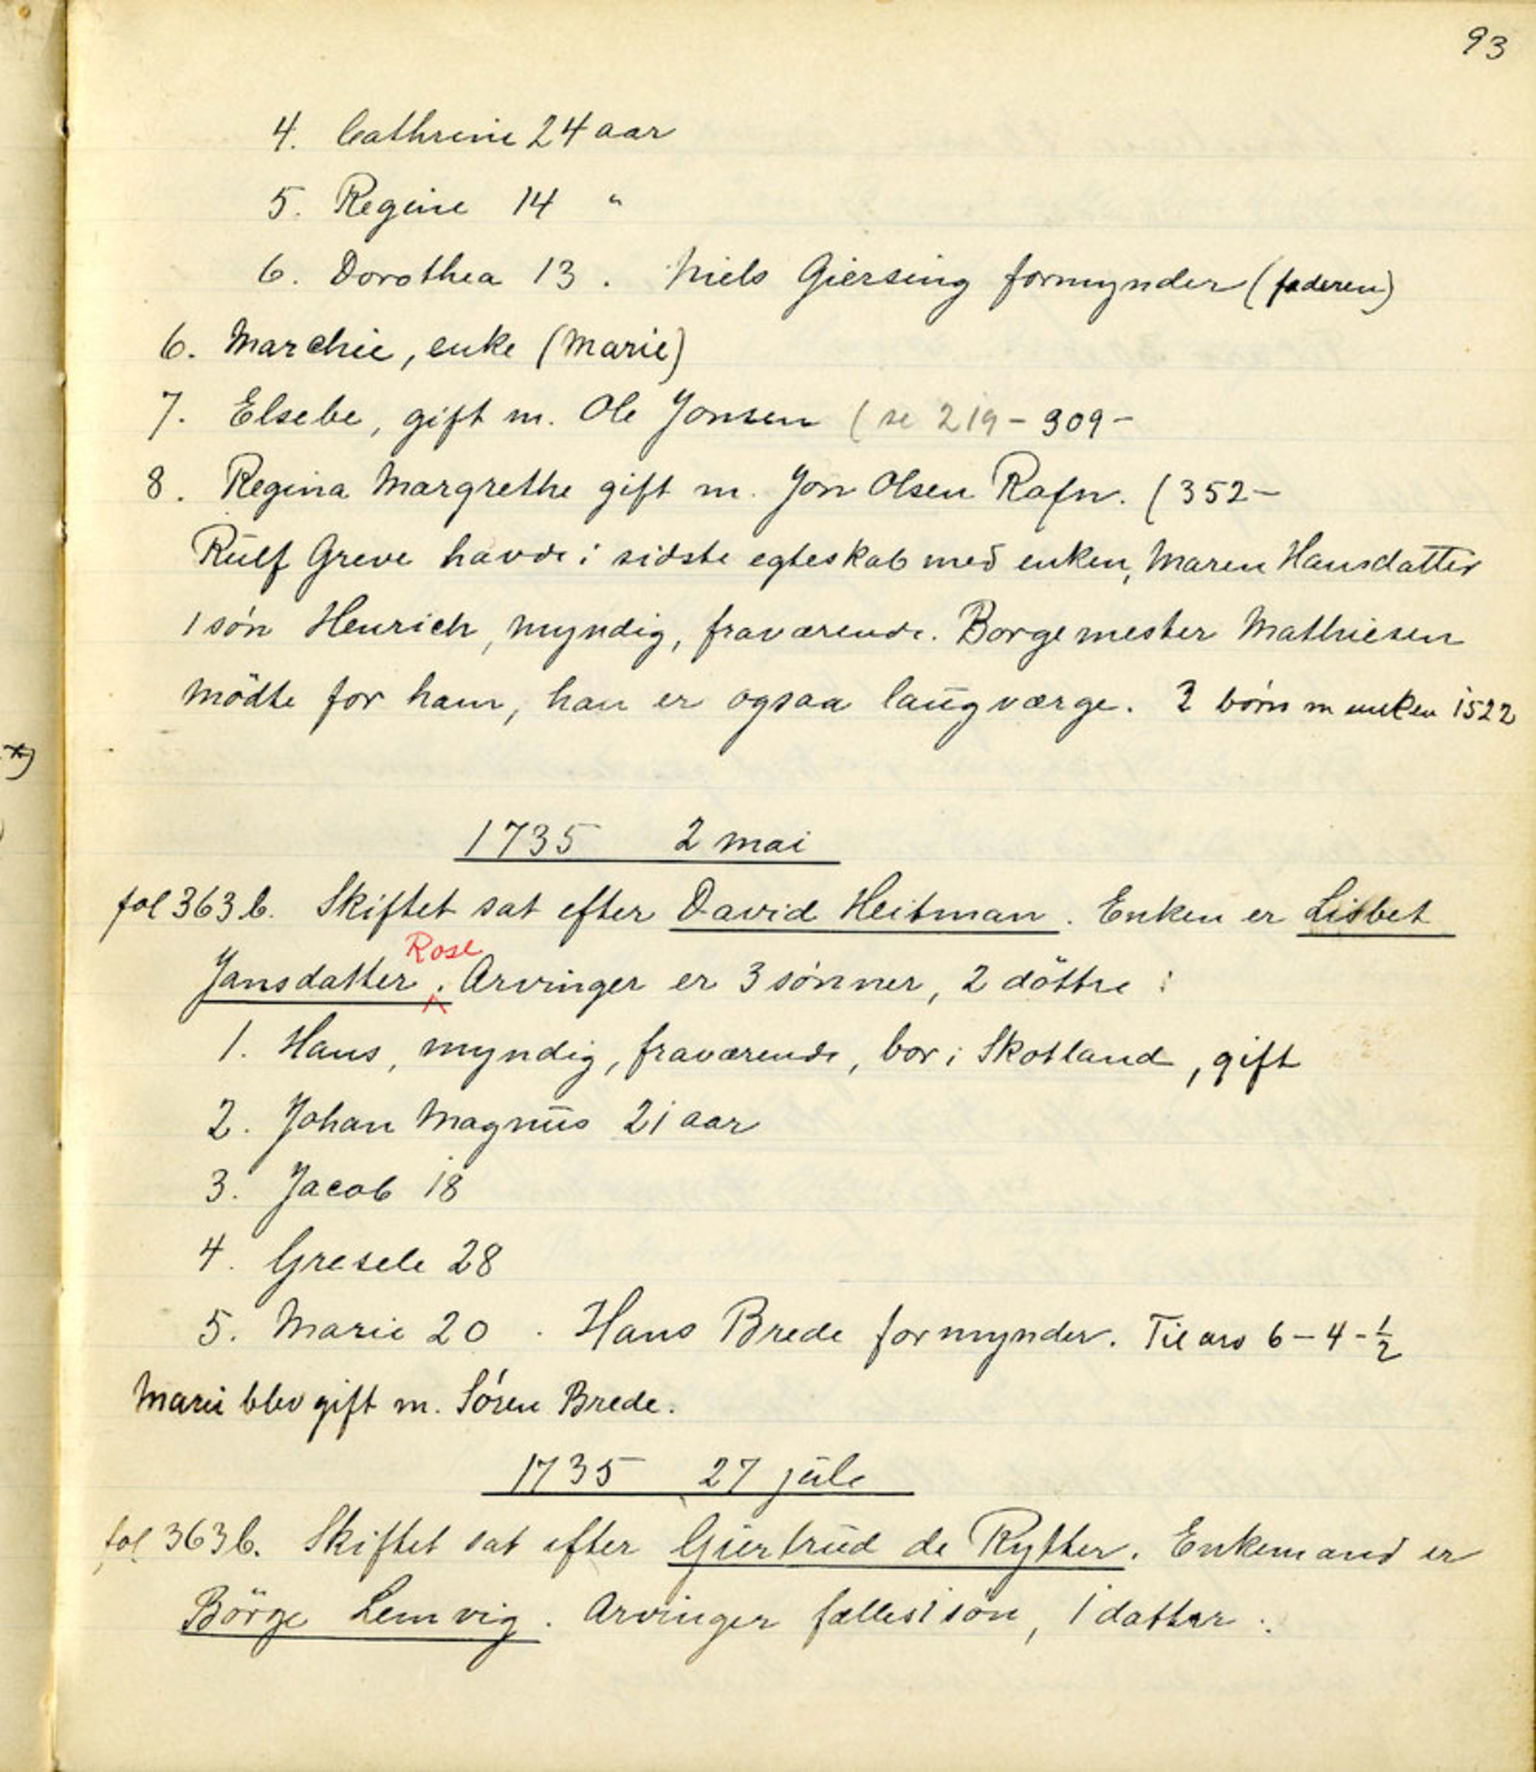 93
4. Cathrine 24 aar
5. Regine 14 "
6. Dorothea 13. Niels Giersing formynder (faderen)
6. Marchie, enke (Marie)
7. Elsebe, gift m. Ole Jonsen (se 219 - 309 -
8. Regina Margrethe gift m. Jon Olsen Rafn. (352 -
Rulf Greve havde i sidste egteskab med enken, Maren Hansdatter
1 søn Henrich, myndig, fraværende. Borgemester Mathiesen
mödte for ham, han er ogsaa laugværge. 2 börn m enken 1522
*)
1735 2 mai
fol 363 b. Skiftet sat efter David Heitman. Enken er Lisbet
Rose
Jansdatter. Arvinger er 3 sönner, 2 döttre :
1. Hans, myndig, fraværende, bor i Skotland, gift
2. Johan Magnus 21 aar
3. Jacob 18
4. Gresele 28
5. Marie 20. Hans Brede formynder. Til arv 6 - 4 - ½
Marie blev gift m. Sören Brede.
1735 27 jule
fol 363 b. Skiftet sat efter Giertrud de Rytter. Enkemand er
Börge Lemvig. Arvinger fælles 1 sön, 1 datter :